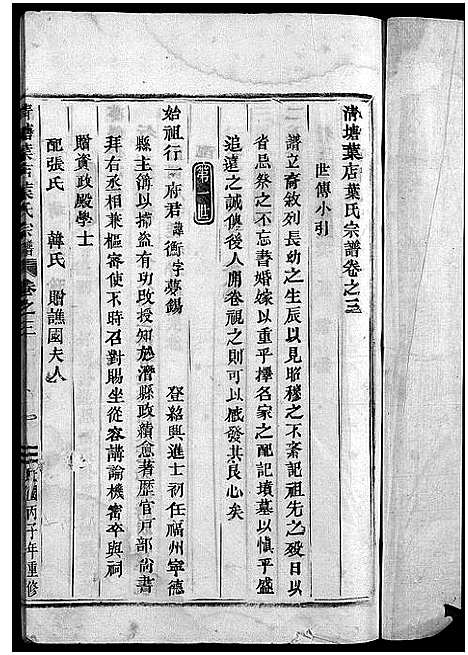 清塘葉店葉氏宗譜卷之三
世傳小引
譜立齊敘列長幼之生辰以見昭穆之不紊記祖先之歿日以
省忌祭之不忘書婚嫁以重乎擇名家之配記墳墓以慎乎盛
追遠之誠俾後人開卷視之則可以感發其良心矣
第一世
始祖行一府君諱衡字夢錫
登紹興進士初任福州寧德
縣主簿以捕盜有功改授知於潛縣政績愈著歷官戶部尚書
拜右丞相兼樞審使不時召對賜坐從容講論機密卒與祠
贈資政殿學士
配張氏 韓氏 贈譙國夫人
清塘葉店葉氏宗譜 卷之三 一 丙子年重修